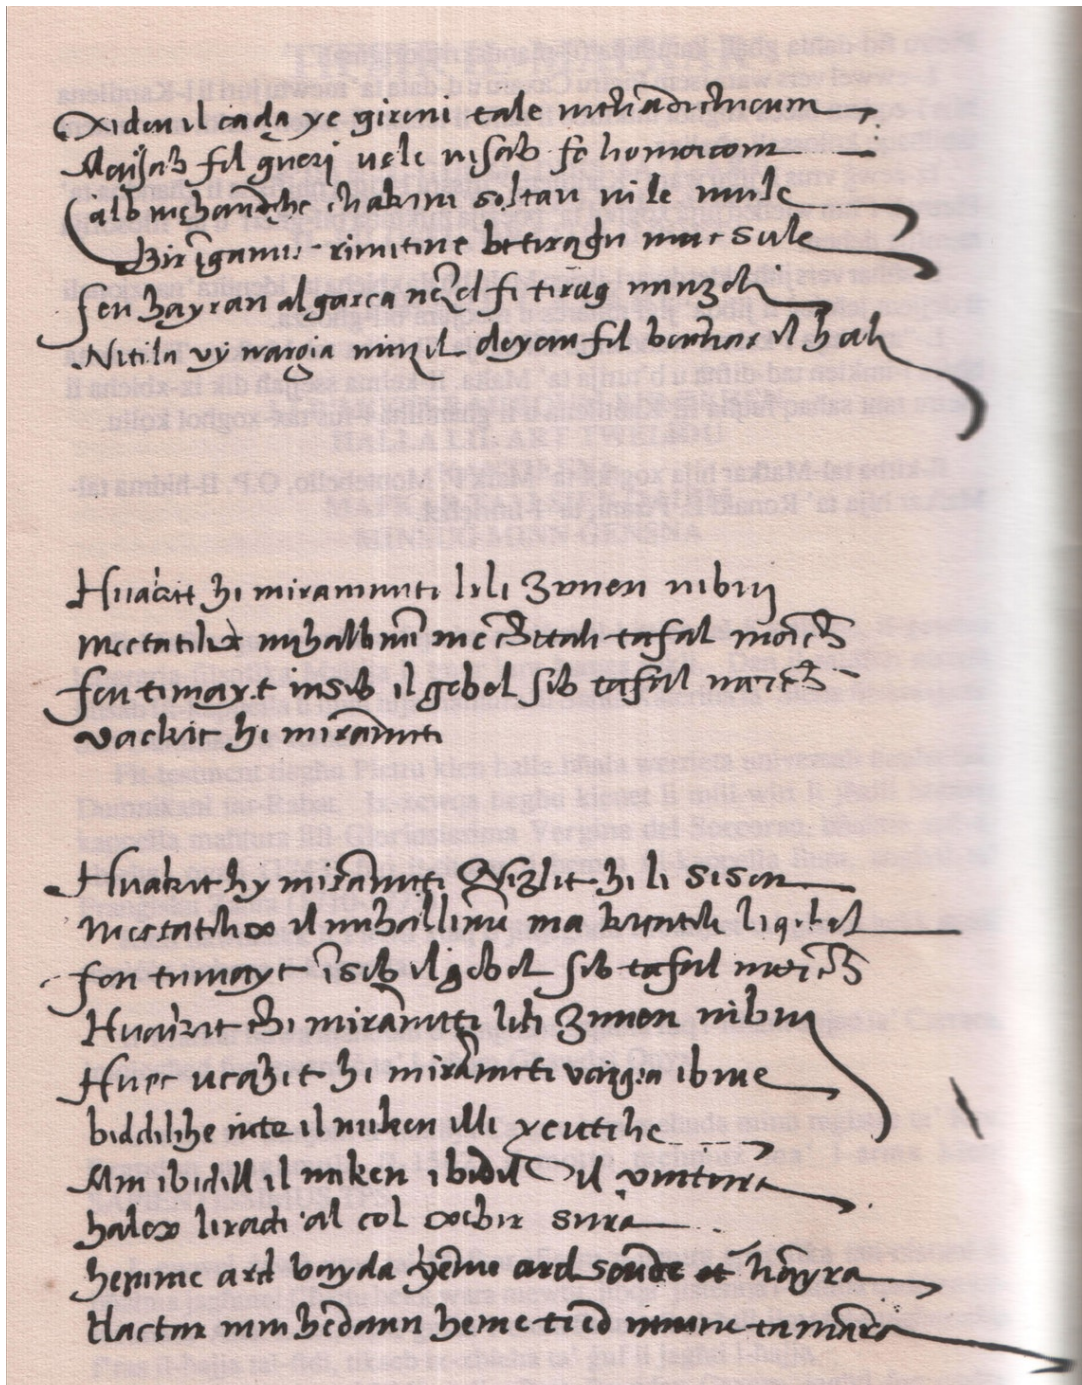 Xideu il cada ye gireni tale nichadithicum
Mensab fil gueri uele nisab fo homorcom
Calb mehandihe chakim soltan ui le mule
Bir imgamic rimitine betiragin mucsule
fen hayran al garca nenzel fi tirag minzeli
Nitila vy nargia ninzil deyem fil bachar il hali
Huakit hi mirammiti lili zimen nibni
mectatilix mihallimin me chitali tafal morchi
fen timayt insib il gebel sib tafal morchi
vackit hi mirammiti
Huakit hy mirammiti Nizlit hi li sisen
Mectatilix il mihallimin ma kitatili li gebel
fen tumayt insib il gebel sib tafal morchi
Huakit thi mirammiti lili zimen nibni
Huec ucakit hi mirammiti vargia ibnie
biddilihe inte il miken illi yeutihe
Min ibidill il miken ibidil il vintura
haliex liradi 'al col xebir sura
hemme ard bayda hemme ard seude et hamyra
Hactar min hedaun heme tred minne tamara